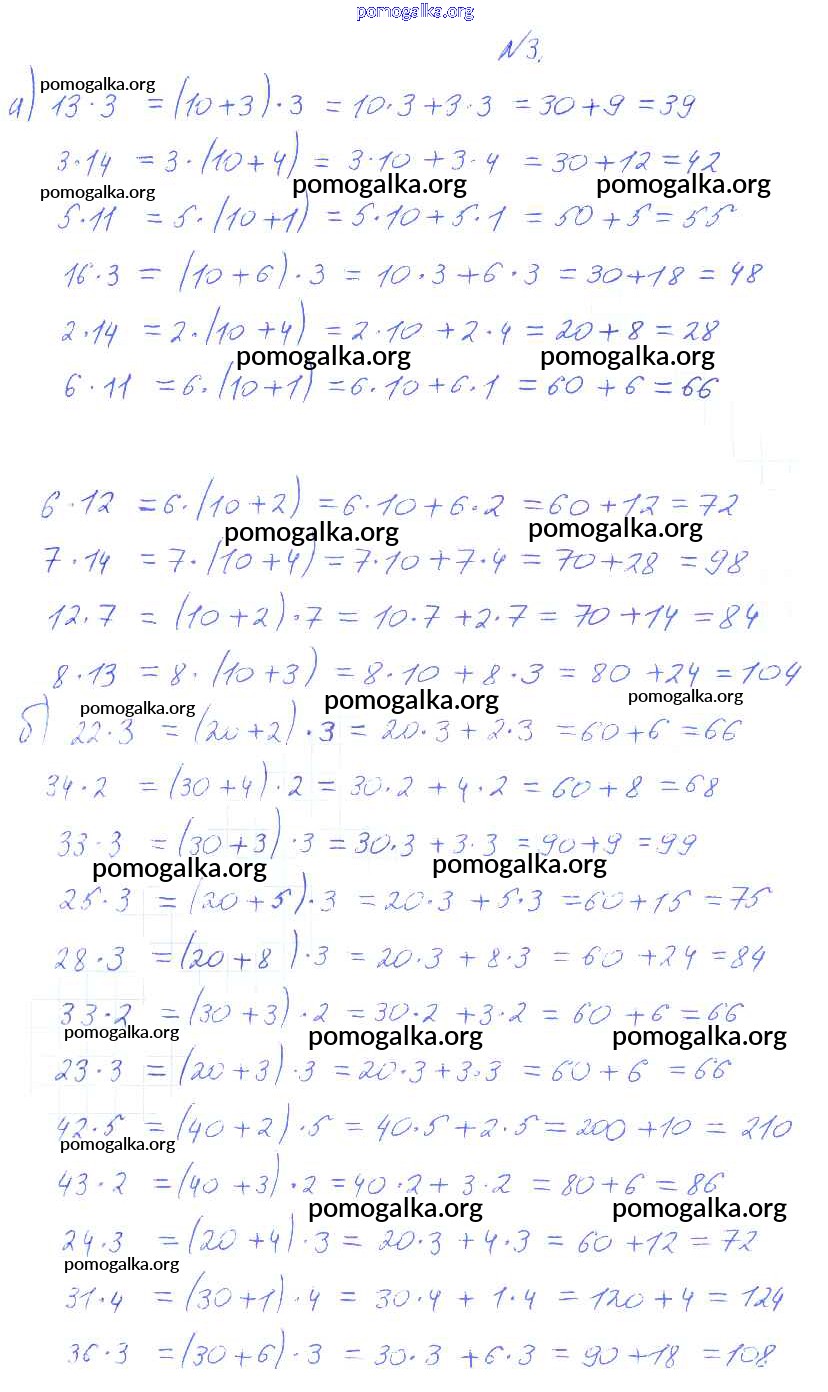 pomogalka.org
№3.
pomogalka.org
а) 13·3 = (10+3)·3 = 10·3+3·3 = 30+9 = 39
3·14 = 3·(10+4) = 3·10+3·4 = 30+12 = 42
pomogalka.org pomogalka.org pomogalka.org
5·11 = 5·(10+1) = 5·10+5·1 = 50+5 = 55
16·3 = (10+6)·3 = 10·3+6·3 = 30+18 = 48
2·14 = 2·(10+4) = 2·10+2·4 = 20+8 = 28
pomogalka.org pomogalka.org
6·11 = 6·(10+1) = 6·10+6·1 = 60+6 = 66
6·12 = 6·(10+2) = 6·10+6·2 = 60+12 = 72
pomogalka.org pomogalka.org
7·14 = 7·(10+4) = 7·10+7·4 = 70+28 = 98
12·7 = (10+2)·7 = 10·7+2·7 = 70+14 = 84
8·13 = 8·(10+3) = 8·10+8·3 = 80+24 = 104
pomogalka.org pomogalka.org pomogalka.org
б) 22·3 = (20+2)·3 = 20·3+2·3 = 60+6 = 66
34·2 = (30+4)·2 = 30·2+4·2 = 60+8 = 68
33·3 = (30+3)·3 = 30·3+3·3 = 90+9 = 99
pomogalka.org pomogalka.org
25·3 = (20+5)·3 = 20·3+5·3 = 60+15 = 75
28·3 = (20+8)·3 = 20·3+8·3 = 60+24 = 84
33·2 = (30+3)·2 = 30·2+3·2 = 60+6 = 66
pomogalka.org pomogalka.org pomogalka.org
23·3 = (20+3)·3 = 20·3+3·3 = 60+6 = 66
42·5 = (40+2)·5 = 40·5+2·5 = 200+10 = 210
pomogalka.org
43·2 = (40+3)·2 = 40·2+3·2 = 80+6 = 86
pomogalka.org pomogalka.org
24·3 = (20+4)·3 = 20·3+4·3 = 60+12 = 72
pomogalka.org
31·4 = (30+1)·4 = 30·4+1·4 = 120+4 = 124
36·3 = (30+6)·3 = 30·3+6·3 = 90+18 = 108